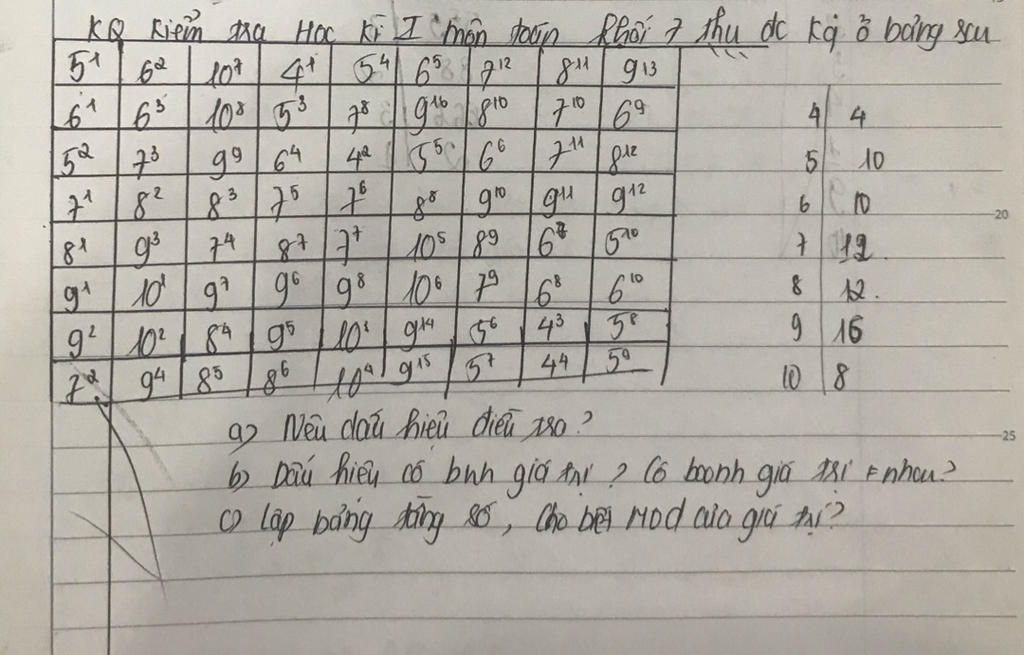 KQ kiểm tra Học kì I môn toán khối 7 thu đc kq ở bảng sau
5¹ 6² 10⁷ 4¹ 5⁴ 6⁵ 7¹² 8¹¹ 9¹³
6¹ 6³ 10⁸ 5³ 7⁸ 9¹⁶ 8¹⁰ 7¹⁰ 6⁹ 4 4
5² 7³ 9⁹ 6⁴ 4² 5⁵ 6⁶ 7¹¹ 8¹² 5 10
7¹ 8² 8³ 7⁵ 7⁶ 8⁸ 9¹⁰ 9¹¹ 9¹² 6 10
20
8¹ 9³ 7⁴ 8⁷ 7⁷ 10⁵ 8⁹ 6⁷ 5¹⁰ 7 12
9¹ 10¹ 9⁷ 9⁶ 9⁸ 10⁶ 7⁹ 6⁸ 6¹⁰ 8 12.
9² 10² 8⁴ 9⁵ 10³ 9¹⁴ 5⁶ 4³ 5⁸ 9 16
7² 9⁴ 8⁵ 8⁶ 10⁴ 9¹⁵ 5⁷ 4⁴ 5⁹ 10 8
a) Nêu dấu hiệu điều tra?
25
b) Dấu hiệu có bnh giá trị? Có boanh giá trị ≠ nhau?
c) lập bảng tầng số, cho biết Mod của giá trị?